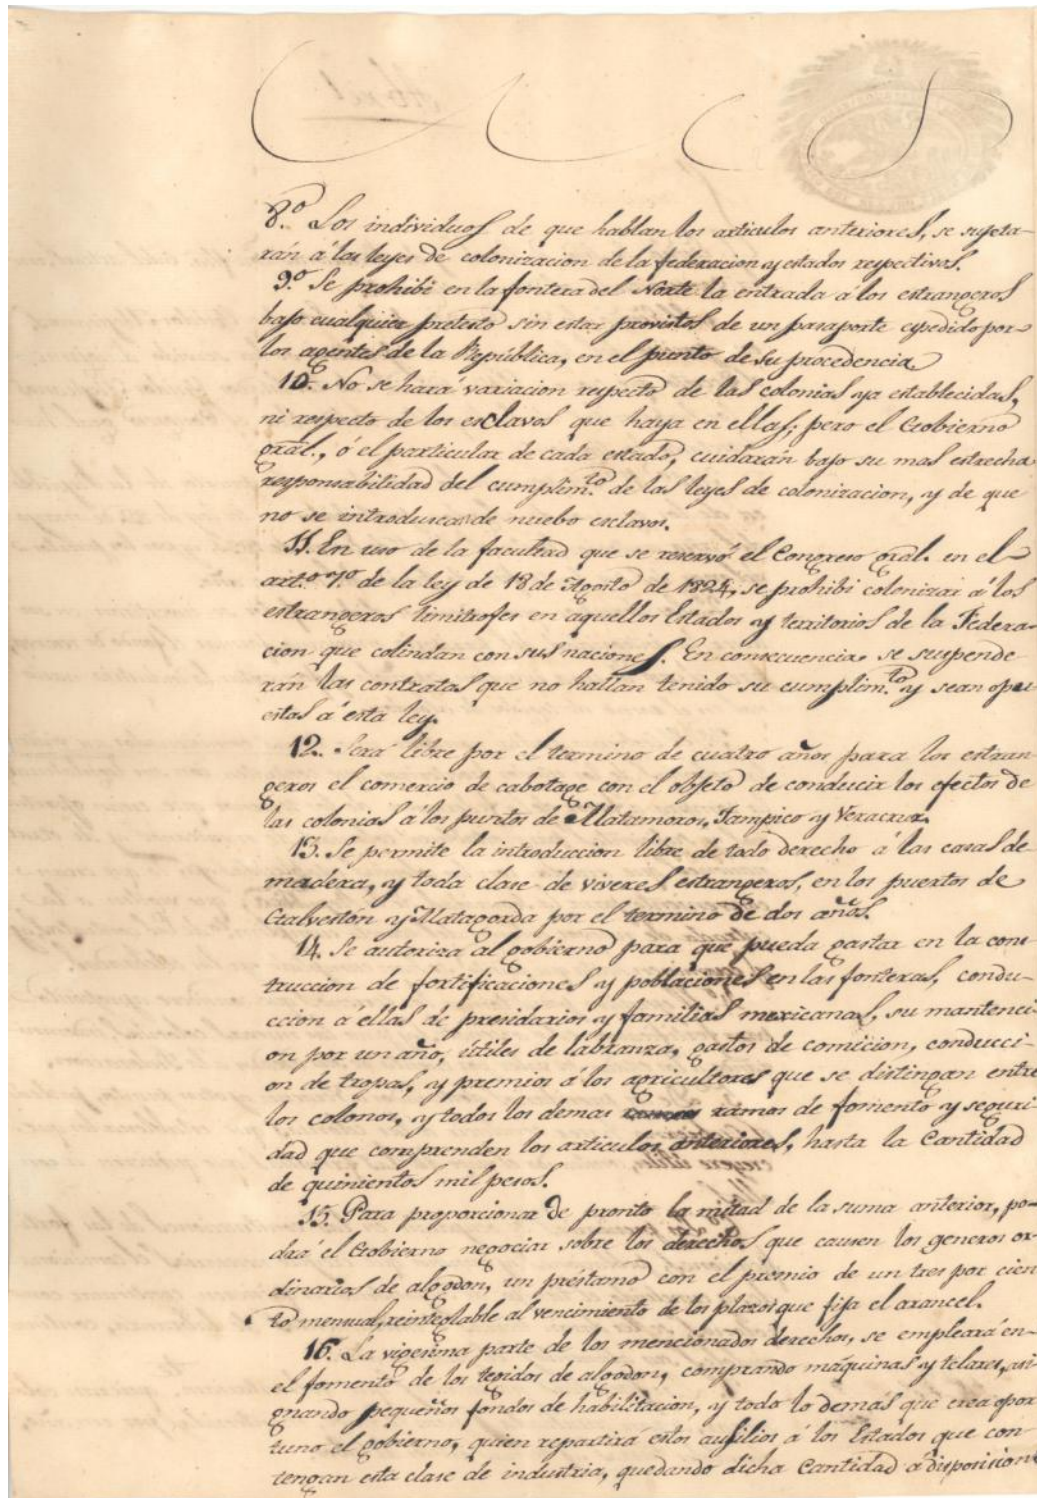 8.º Los individuos de que hablan los articulos anteriores, se sujeta-
rán á las leyes de colonizacion de la federacion y estados respectivos.
9.º Se prohibi en la fontera del Norte la entrada á los estrangeros
bajo cualquier pretesto sin estar provistos de un pasaporte espedido por
los agentes de la República, en el punto de su procedencia.
10. No se hará variacion respecto de las colonias ya establecidas,
ni respecto de los esclavos que haya en ellas; pero el Gobierno
gral., ó el particular de cada estado, cuidarán bajo su mas estrecha
responsabilidad del cumplim.to de las leyes de colonizacion, y de que
no se introduscan de nuebo esclavos.
11. En uso de la facultad que se reservó el Congreso gral. en el
art.º 7.º de la ley de 18 de Agosto de 1824, se prohibi colonizar á los
estrangeros limitrofes en aquellos Estados y territorios de la Federa-
cion que colindan con sus naciones. En consecuencia se suspende
rán las contratas que no hallan tenido su cumplim.to y sean opu
estas á esta ley.
12. Será libre por el termino de cuatro años para los estran
geros el comercio de cabotage con el objeto de conducir los efectos de
las colonias á los puertos de Matamoros, Tampico y Veracruz.
13. Se permite la introduccion libre de todo derecho á las casas de
madera, y toda clase de viveres estrangeros, en los puertos de
Galveston y Matagorda por el termino de dos años.
14. Se autoriza al gobierno para que pueda gastar en la cons
truccion de fortificaciones y poblaciones en las fonteras, condu-
ccion á ellas de presidarios y familias mexicanas, su mantenci-
on por un año, útiles de labranza, gastos de comicion, conducci-
on de tropas, y premios á los agricultores que se distingan entre
los colonos, y todos los demas ramos de fomento y seguri
dad que comprenden los articulos anteriores, hasta la Cantidad
de quinientos mil pesos.
15. Para proporcionar de pronto la mitad de la suma anterior, po-
drá el Gobierno negociar sobre los derechos que causen los generos or
dinarios de algodon, un préstamo con el premio de un tres por cien
to mensual, reinteglable al vencimiento de los plazos que fija el arancel.
16. La vigesima parte de los mencionados derechos, se empleará en-
el fomento de los tegidos de algodon, comprando máquinas y telares, asi
gnando pequeños fondos de habilitacion, y todo lo demás que crea opor
tuno el gobierno, quien repartirá estos ausilios á los Estados que con
tengan esta clase de industria, quedando dicha Cantidad á disposicion